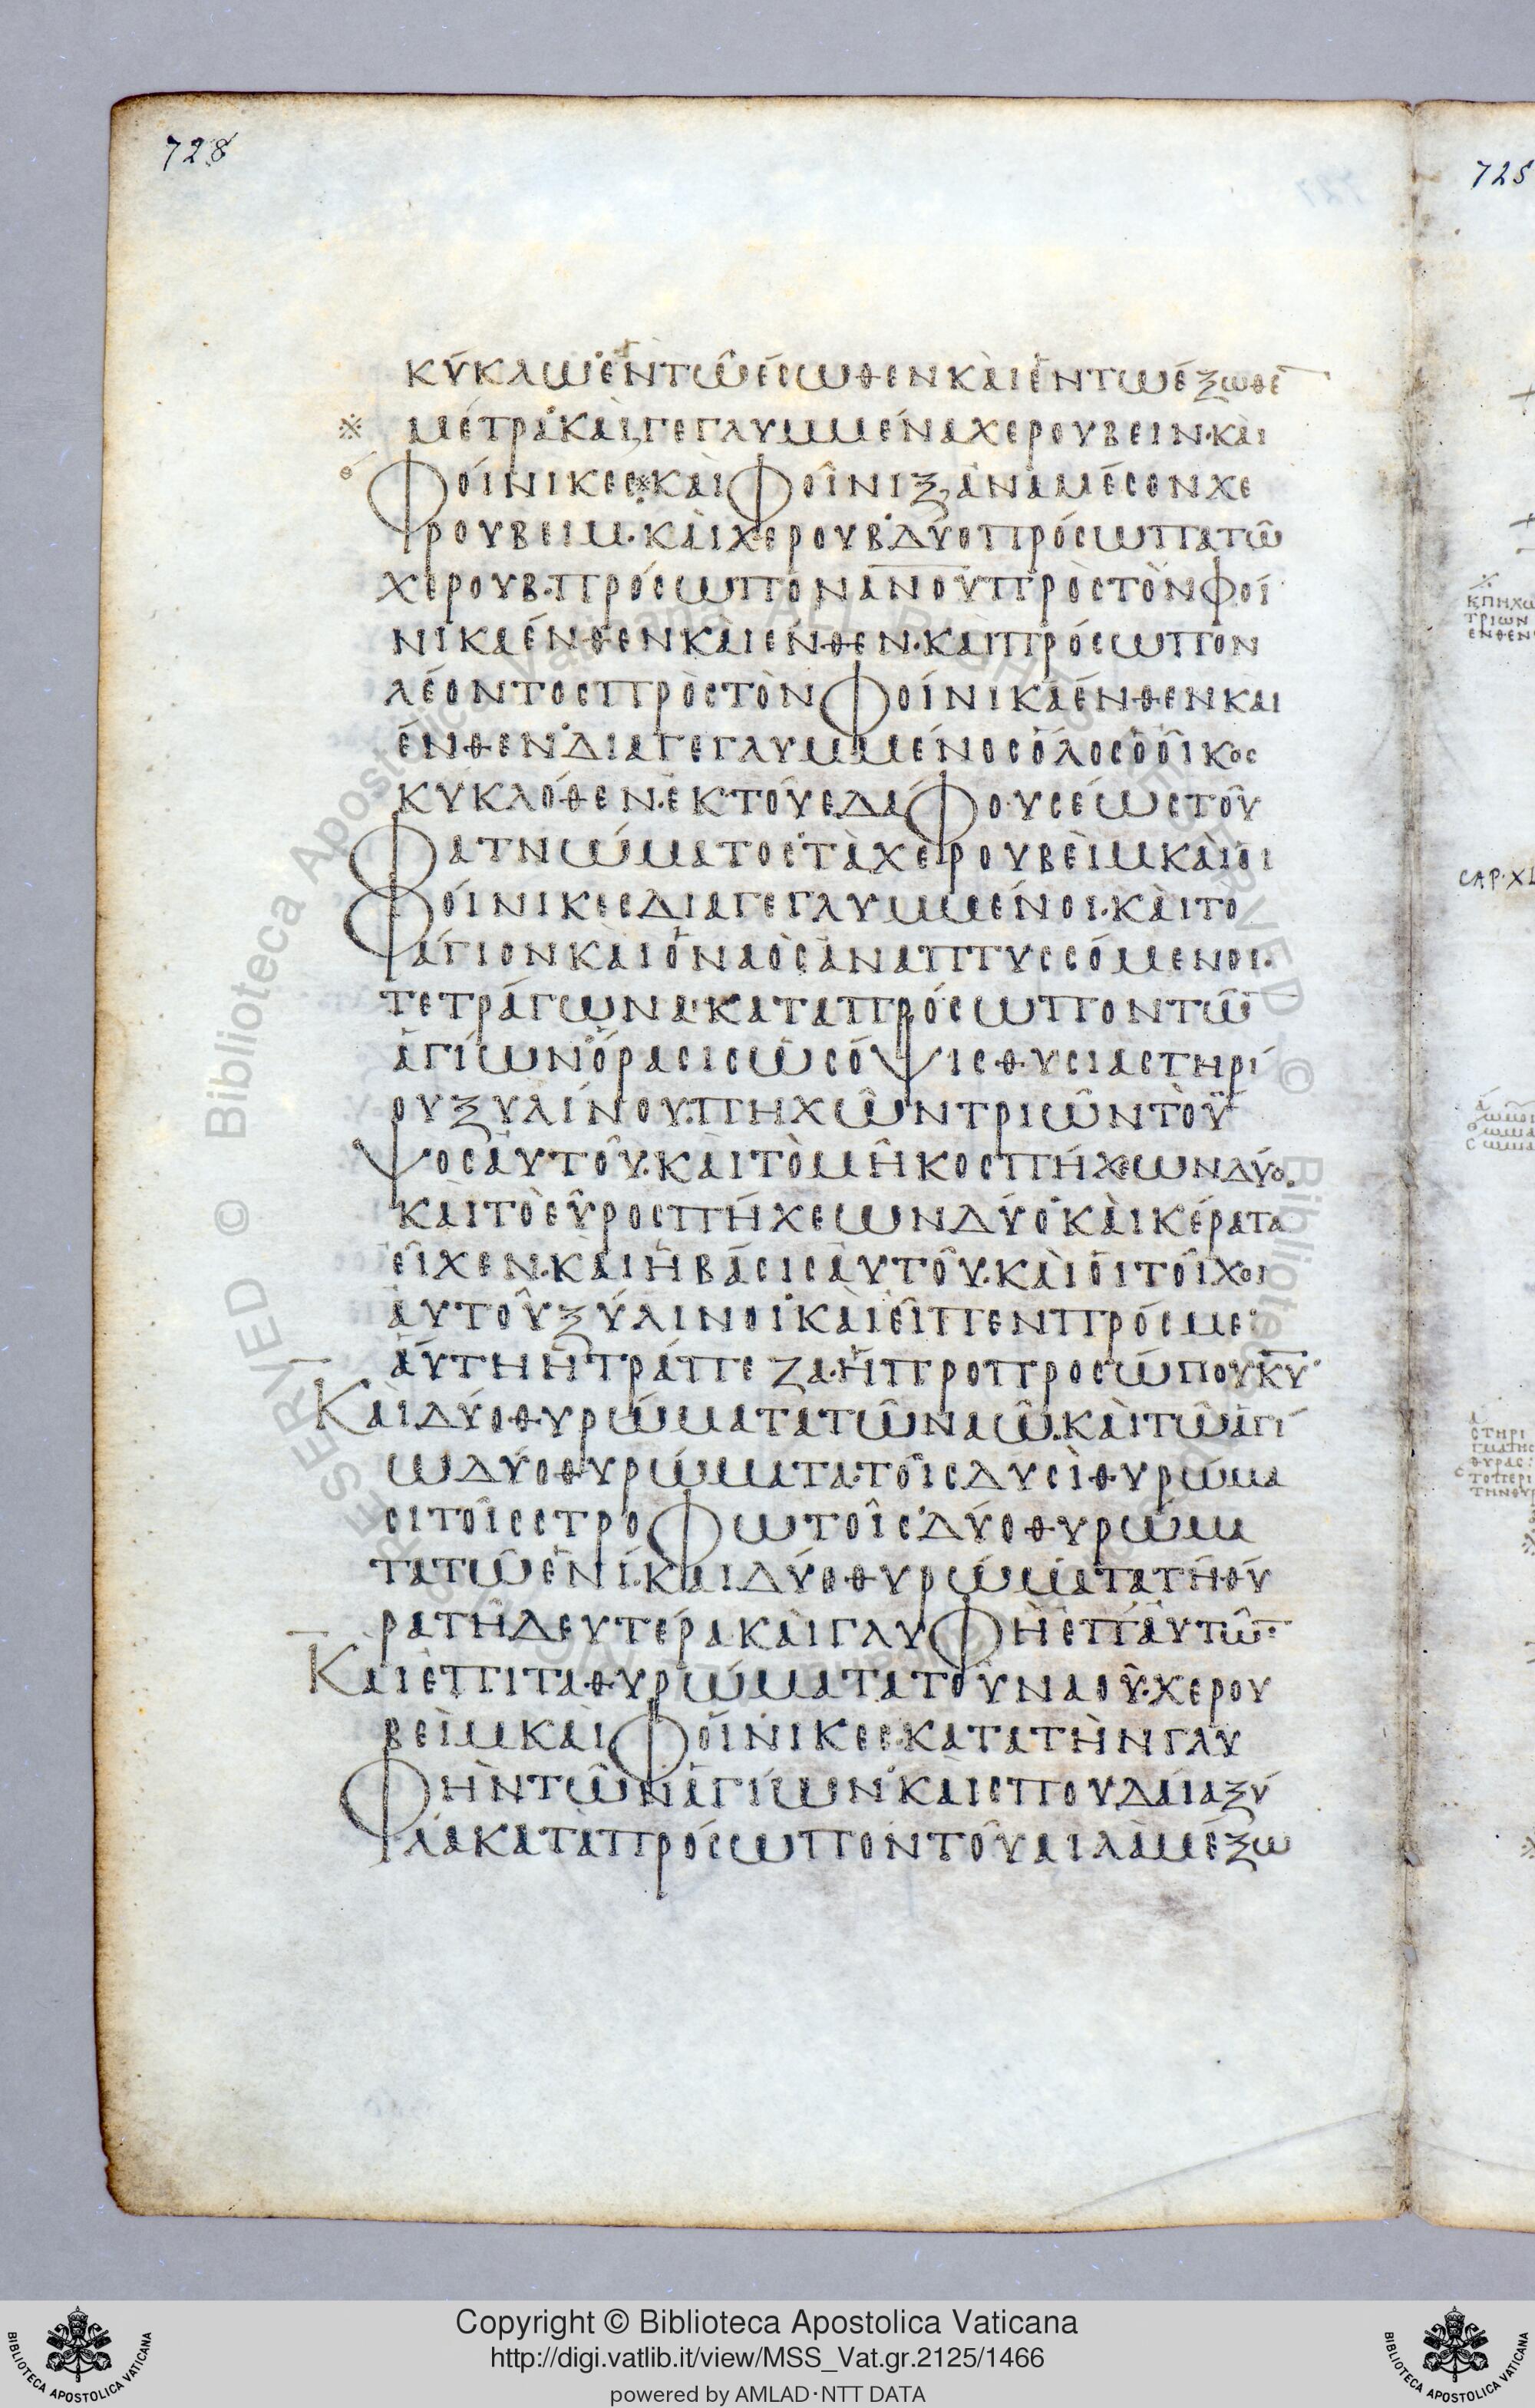 728
728
κύκλω ἐν τῶ ἔσωθεν καὶ ἐν τῶ ἔξωθε̅
※ μέτρα· καὶ γεγλυμμένα χερουβειν· καὶ
φοίνικες ※ καὶ φοῖνιξ, ἀναμέσον χε
ρουβειμ· καὶ χερουβ· δύο πρόσωπα τῶ
χερουβ· πρόσωπον α̅ν̅ο̅υ̅ πρὸς τὸν φοί
νικα ἔνθεν καὶ ἔνθεν· καὶ πρόσωπον
λέοντος πρὸς τὸν φοίνικα ἔνθεν και
ἔνθεν· διαγεγλυμμένος ὅλος ὁ οἶκος
κυκλόθεν· ἐκ τοῦ εδάφους ἕως τοῦ
φατνώματος· τὰ χερουβεὶμ καὶ οἱ
φοίνικες διαγεγλυμμένοι· καὶ το
ἅγιον καὶ ὁ ναὸς ἀναπτυσσόμενοι·
τετράγωνα· κατα πρόσωπον τῶ̅
ἁγίων ὅρασις ὡς ὄψις θυσιαστηρί
ου ξυλίνου· πηχῶν τριῶν τὸ ὕ
ψος ἀυτοῦ· καὶ τὸ μῆκος πήχεων δύο·
καὶ τὸ εὖρος πήχεων δύο· καὶ κέρατα
εἶχεν· καὶ ἡ βάσις ἀυτοῦ· καὶ οἱ τοῖχοι
ἀυτοῦ ξύλινοι· καὶ εἶπεν πρός με
ἅυτη ἡ τράπεζα· ἡ προ προσώπου κ̅υ̅·
Καὶ δύο θυρώματα τῶ ναῶ· καὶ τῶ ἁγί
ω δύο θυρώματα· τοῖς δυσὶ θυρώμα
σι τοῖς στροφωτοῖς· δύο θυρώμ
τα τῶ ἑνί· και δύο θυρώματα τῆ θύ
ρα τῆ δευτέρα καὶ γλυφὴ ἐπ' ἀυτῶ̅·
Και ἐπι τα θυρώματα τοῦ ναοῦ· χερου
βεὶμ καὶ φοίνικες· κατα τὴν γλυ
φὴν τῶν ἁγίωεν· καὶ σπουδαία ξύ
λα κατὰ πρόσωπον τοῦ αιλὰμ ἔξω
CAP·XL
Copyright © Biblioteca Apostolica Vaticana
http://digi.vatlib.it/view/MSS_Vat.gr.2125/1466
powered by AMLAD·NTT DATA
BIBLIOTECA APOSTOLICA VATICANA
BIBLIOTECA APOSTOLICA VATICANA